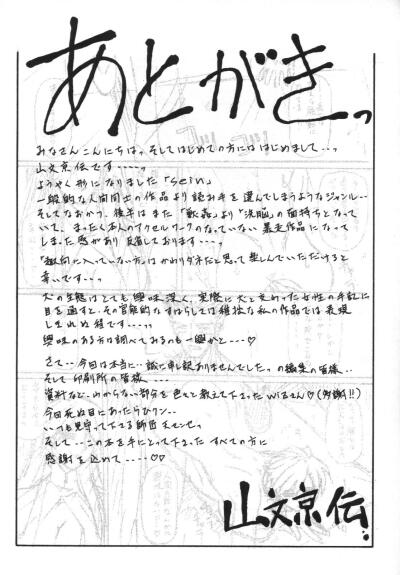 あとがきっ
みなさんこんにちはっ。そしてはじめての方にははじめまして…っ
山文京伝です……っ
ようやく形になりました「Sein」
一般的な人間同士の作品より読み手を選んでしまうようなジャンル…
そしてなおかつ、後半はまた「獣姦」より「洗脳」の面持ちとなって
いて、まったく本人のアクセルワークのなっていない、暴走作品になって
しまった感があり 反省しております…っ
「趣向に入っていない方」はかわりダネだと思って楽しんでいただけると
幸いです…っ
犬の生態はとても興味深く、実際に犬と交わった女性の手記に
目を通すと、その官能的なすばらしさは稚拙な私の作品では表現
しきれぬ程です…っ
興味のある方は調べてみるのも一興かと…♡
さて…今回は本当に…誠に申し訳ありませんでしたっ の編集の皆様…
そして印刷所の皆様…
資料など、山からない部分を色々と教えて下さった WIZさん♡(感謝!!)
今回死ぬ目にあったらむワン…
いつも見守って下さる師匠
そして…この本を手にとって下さった すべての方に
感謝を込めて……♡
山文京伝